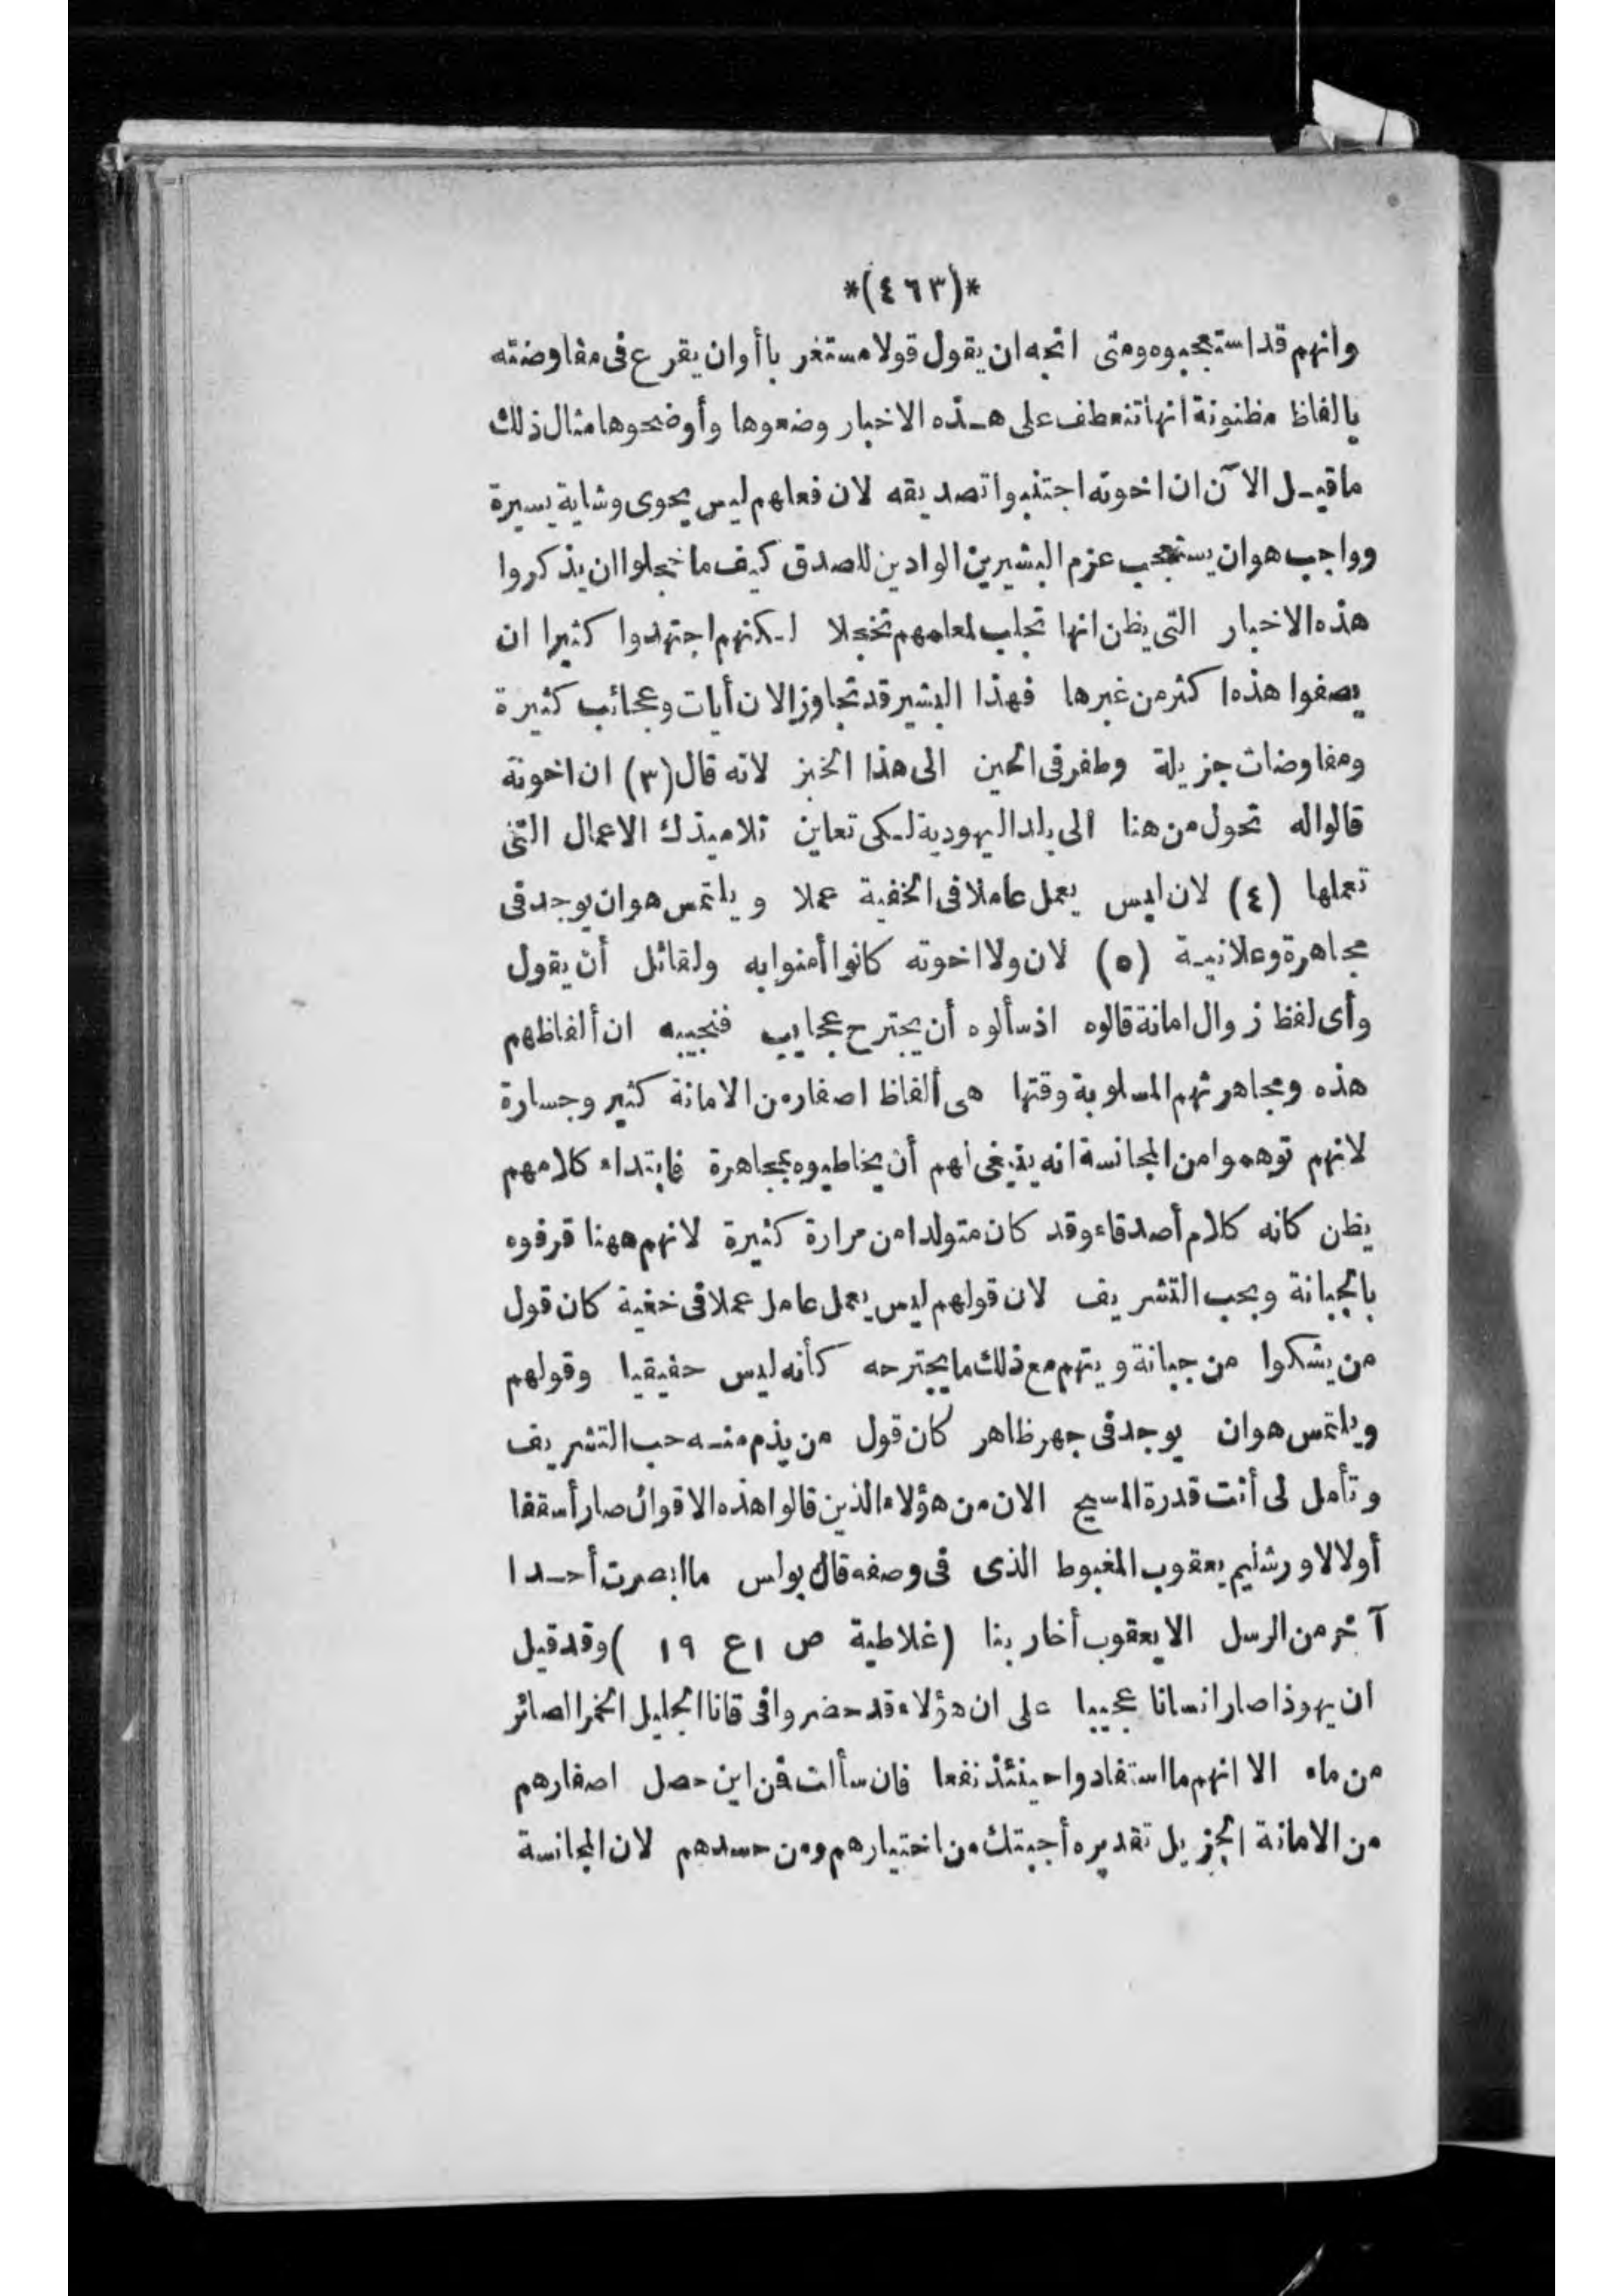 *(٤٦٣)*
وانهم قد استعجبوه ومتى اتجه ان يقول قولا مستغربا أو ان يقرع فى مفاوضته
بالفاظ مظنونة انها تنعطف على هذه الاخبار وضعوها وأوضحوها مثال ذلك
ما قيل الآن ان اخوته اجتنبوا تصديقه لان فعلهم ليس يحوى وشاية يسيرة
وواجب هو ان يستعجب عزم البشيرين الوادين للصدق كيف ما خجلوا ان يذكروا
هذه الاخبار التى يظن انها تجلب لمعلمهم تخجلا لكنهم اجتهدوا كثيرا ان
يصفوا هذه اكثر من غيرها فهذا البشير قد تجاوز الان أيات وعجائب كثيرة
ومفاوضات جزيلة وطفر فى الحين الى هذا الخبز لانه قال (٣) ان اخوته
قالوا له تحول من هنا الى بلد اليهودية لكى تعاين تلاميذك الاعمال التى
تعملها (٤) لان ليس يعمل عاملا فى الخفية عملا ويلتمس هو ان يوجد فى
مجاهرة وعلانية (٥) لان ولا اخوته كانوا أمنوا به ولقائل أن يقول
وأى لفظ زوال امانة قالوه اذ سألوه أن يجترح عجايب فنجيبه ان ألفاظهم
هذه ومجاهرتهم المسلوبة وقتها هى ألفاظ اصفار من الامانة كثير وجسارة
لانهم توهموا من المجانسة انه ينبغى لهم أن يخاطبوه بمجاهرة فابتداء كلامهم
يظن كانه كلام أصدقاء وقد كان متولدا من مرارة كثيرة لانهم ههنا قرفوه
بالجبانة وبحب التشريف لان قولهم ليس يعمل عامل عملا فى خفية كان قول
من يشكوا من جبانة ويتهم مع ذلك ما يجترحه كأنه ليس حقيقيا وقولهم
ويلتمس هو ان يوجد فى جهر ظاهر كان قول من يذم منه حب التشريف
وتأمل لى أنت قدرة المسيح الان من هؤلاء الذين قالوا هذه الاقوال صار أسقفا
أولا لاورشليم يعقوب المغبوط الذى فى وصفه قال بولس ما ابصرت أحدا
آخر من الرسل الا يعقوب أخا ربنا (غلاطية ص ١ ع ١٩) وقد قيل
ان يهوذا صار انسانا عجيبا على ان هؤلاء قد حضروا فى قانا الجليل الخمر الصائر
من ماء الا انهم ما استفادوا حينئذ نفعا فان سألت فمن اين حصل اصفارهم
من الامانة الجزيل تقديره أجبتك من اختيارهم ومن حسدهم لان المجانسة